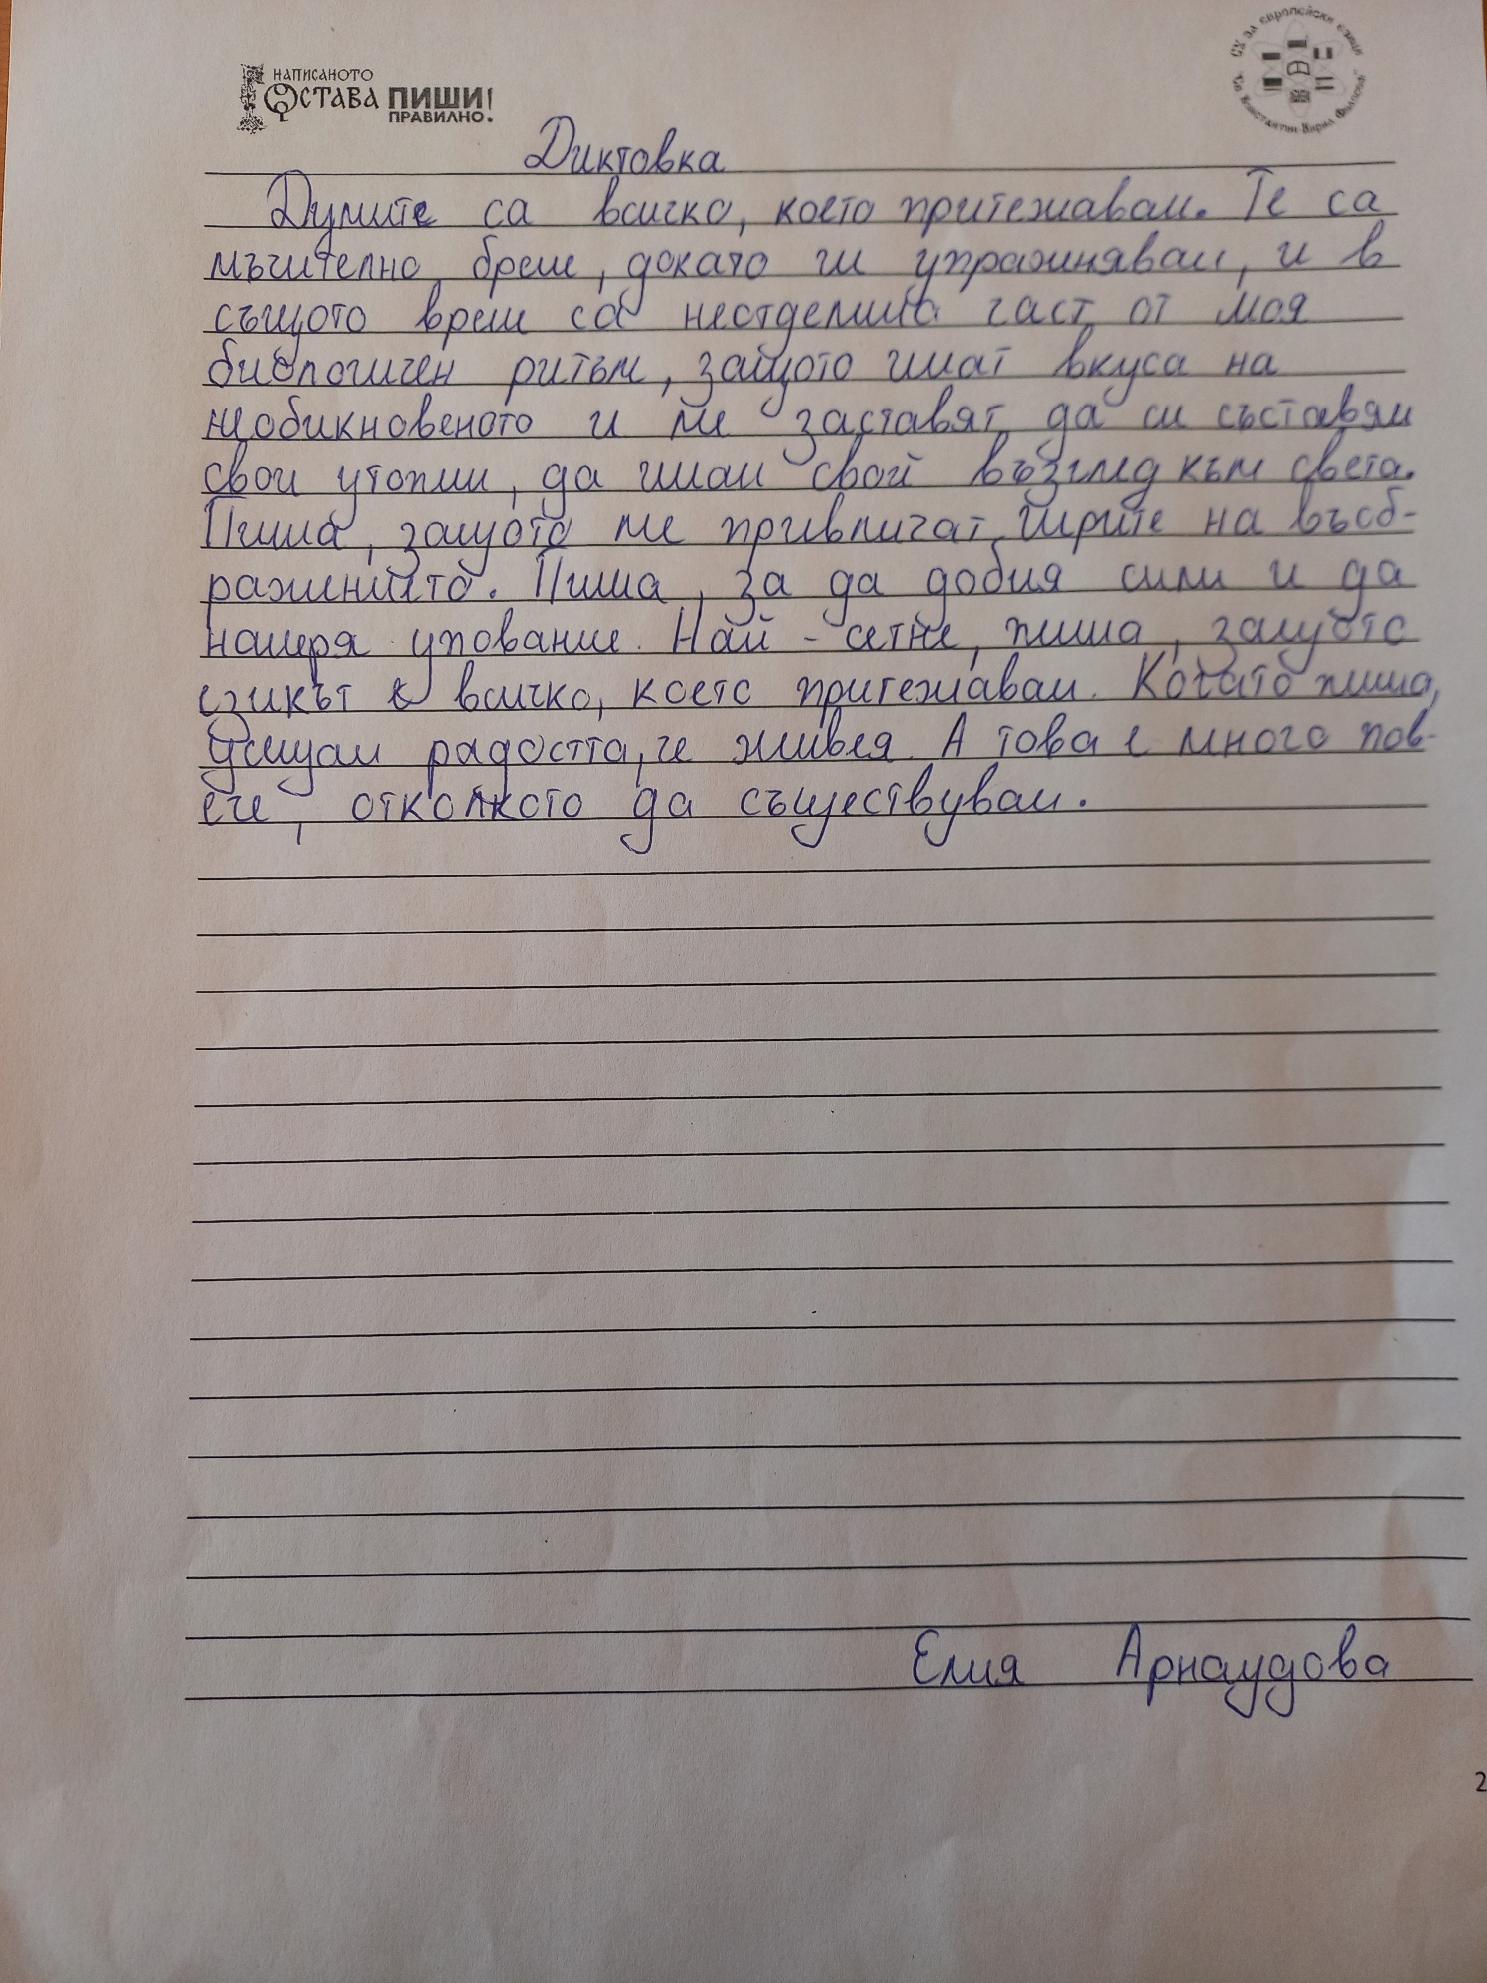 НАПИСАНОТО
ОСТАВА ПИШИ
ПРАВИЛНО!
СУ за европейски езици
"Св. Константин-Кирил Философ"
Диктовка
Думите са всичко, което притежавам. Те са
мъчително бреме, докато ги упражнявам, и в
същото време са неотделима част от моя
биологичен ритъм, защото имат вкуса на
необикновеното и ме заставят да си съставям
свои утопии, да имам свой възглед към света.
Пиша, защото ме привличат игрите на въоб-
ражението. Пиша, за да добия сили и да
намеря упование. Най-сетне, пиша, защото
езикът е всичко, което притежавам. Когато пиша,
усещам радостта, че живея. А това е много пов-
ече, отколкото да съществувам.
Елия Арнаудова
2